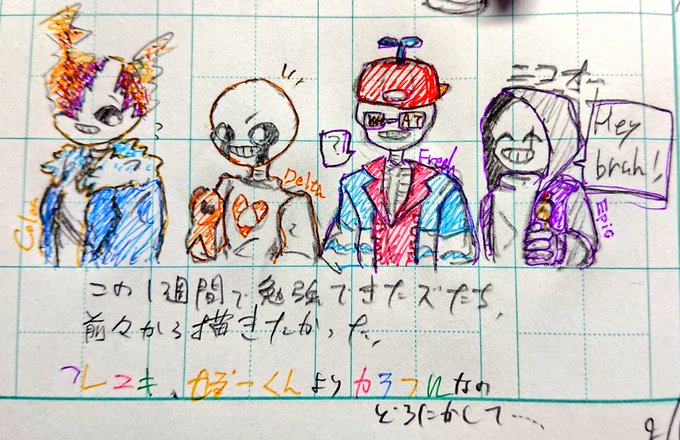 ニコォー
Hey
brah!
?
Color
Delta
Fresh
Epic
この1週間で勉強できたズたち、
前々から描きたかった。
カラーくんよりカラフルなの
どうにかして……